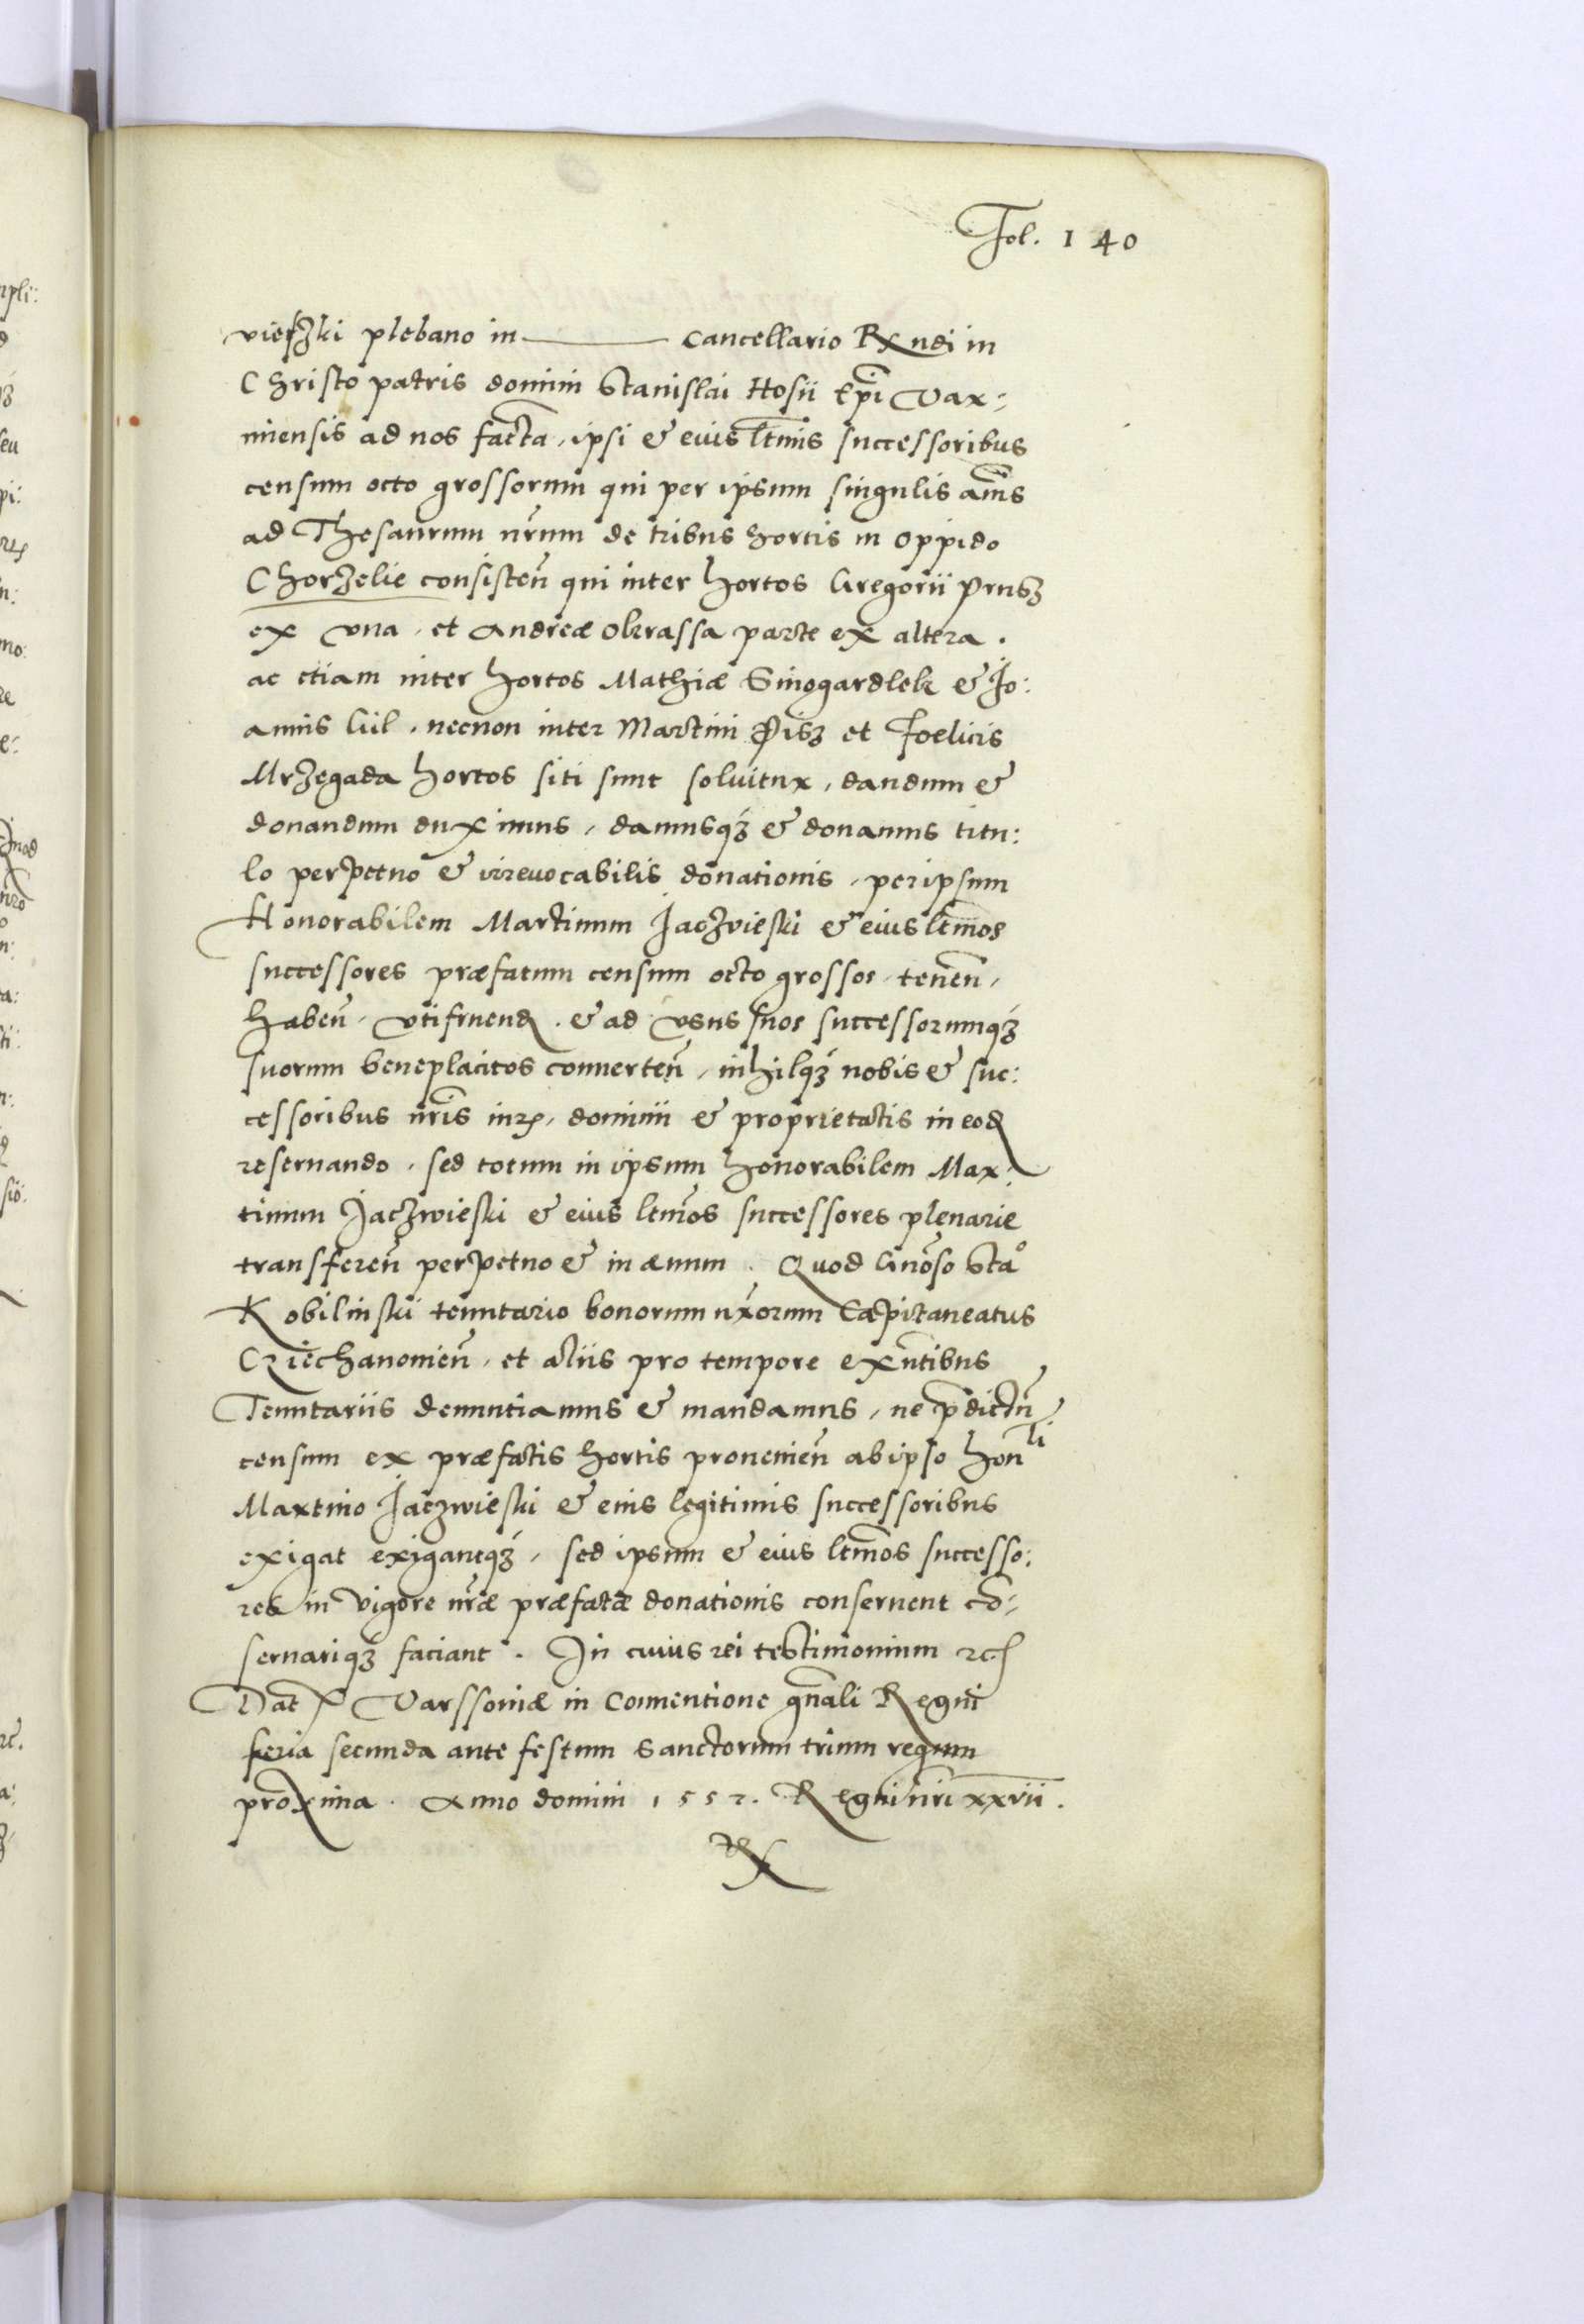 Fol. 140
vieszki plebano in ——— Cancellario Rxndi in
Christo patris domini Stanislai Hosii Epi Var:
miensis ad nos facta, ipsi & eius ltmis successoribus
censum octo grossorum qui per ipsum singulis annis
ad Thesaurum nrum de tribus hortis in oppido
Chorzelie consisten qui inter hortos Gregorii Prusz
ex vna, et Andreæ Okrassa parte ex altera.
ac etiam inter hortos Mathiæ Sinogardlek & Jo:
annis Gil, necnon inter Martini Pisz et Foelicis
Mrzegada hortos siti sunt soluitur, dandum &
donandum duximus, damusqz & donamus titu:
lo perpetuo & irreuocabilis donationis, per ipsum
Honorabilem Martinum Jaczvieski & eius ltmos
successores præfatum censum octo grossos, tenen,
haben, vtifruend. & ad vsus suos successorumqz
suorum beneplacitos conuerten, nihilqz nobis & suc:
cessoribus nris iur, dominii & proprietatis in eod
reseruando, sed totum in ipsum honorabilem Mar:
tinum Jaczwieski & eius ltmos successores plenarie
transferen perpetuo & in æuum. Quod Gnoso Stao
Kobilinski tenutario bonorum nrorum Capitaneatus
Cziechanouien, et aliis pro tempore exntibus
Tenutariis denuntiamus & mandamus, ne pdictu
censum ex præfatis hortis prouenien ab ipso honli
Martino Jaczwieski & eius legitimis successoribus
exigat exigantqz, sed ipsum & eius ltmos successo:
res in vigore nræ præfatæ donationis conseruent co:
seruariqz faciant. In cuius rei testimonium etc
Dat Varssouiæ in Conuentione gnali Regni
feria secunda ante festum Sanctorum trium regum
proxima. Anno domini 1552. Regni nri xxvii.